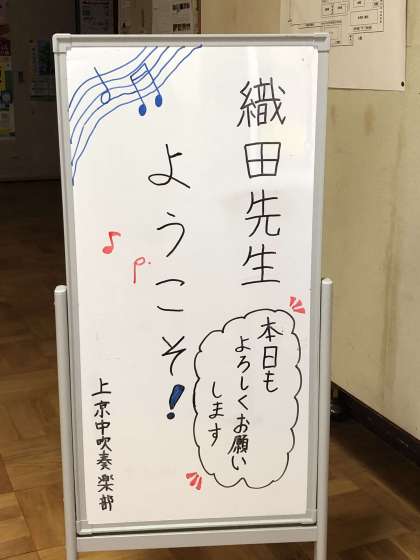 織田先生
ようこそ!
本日も
よろしくお願い
します
上京中吹奏楽部